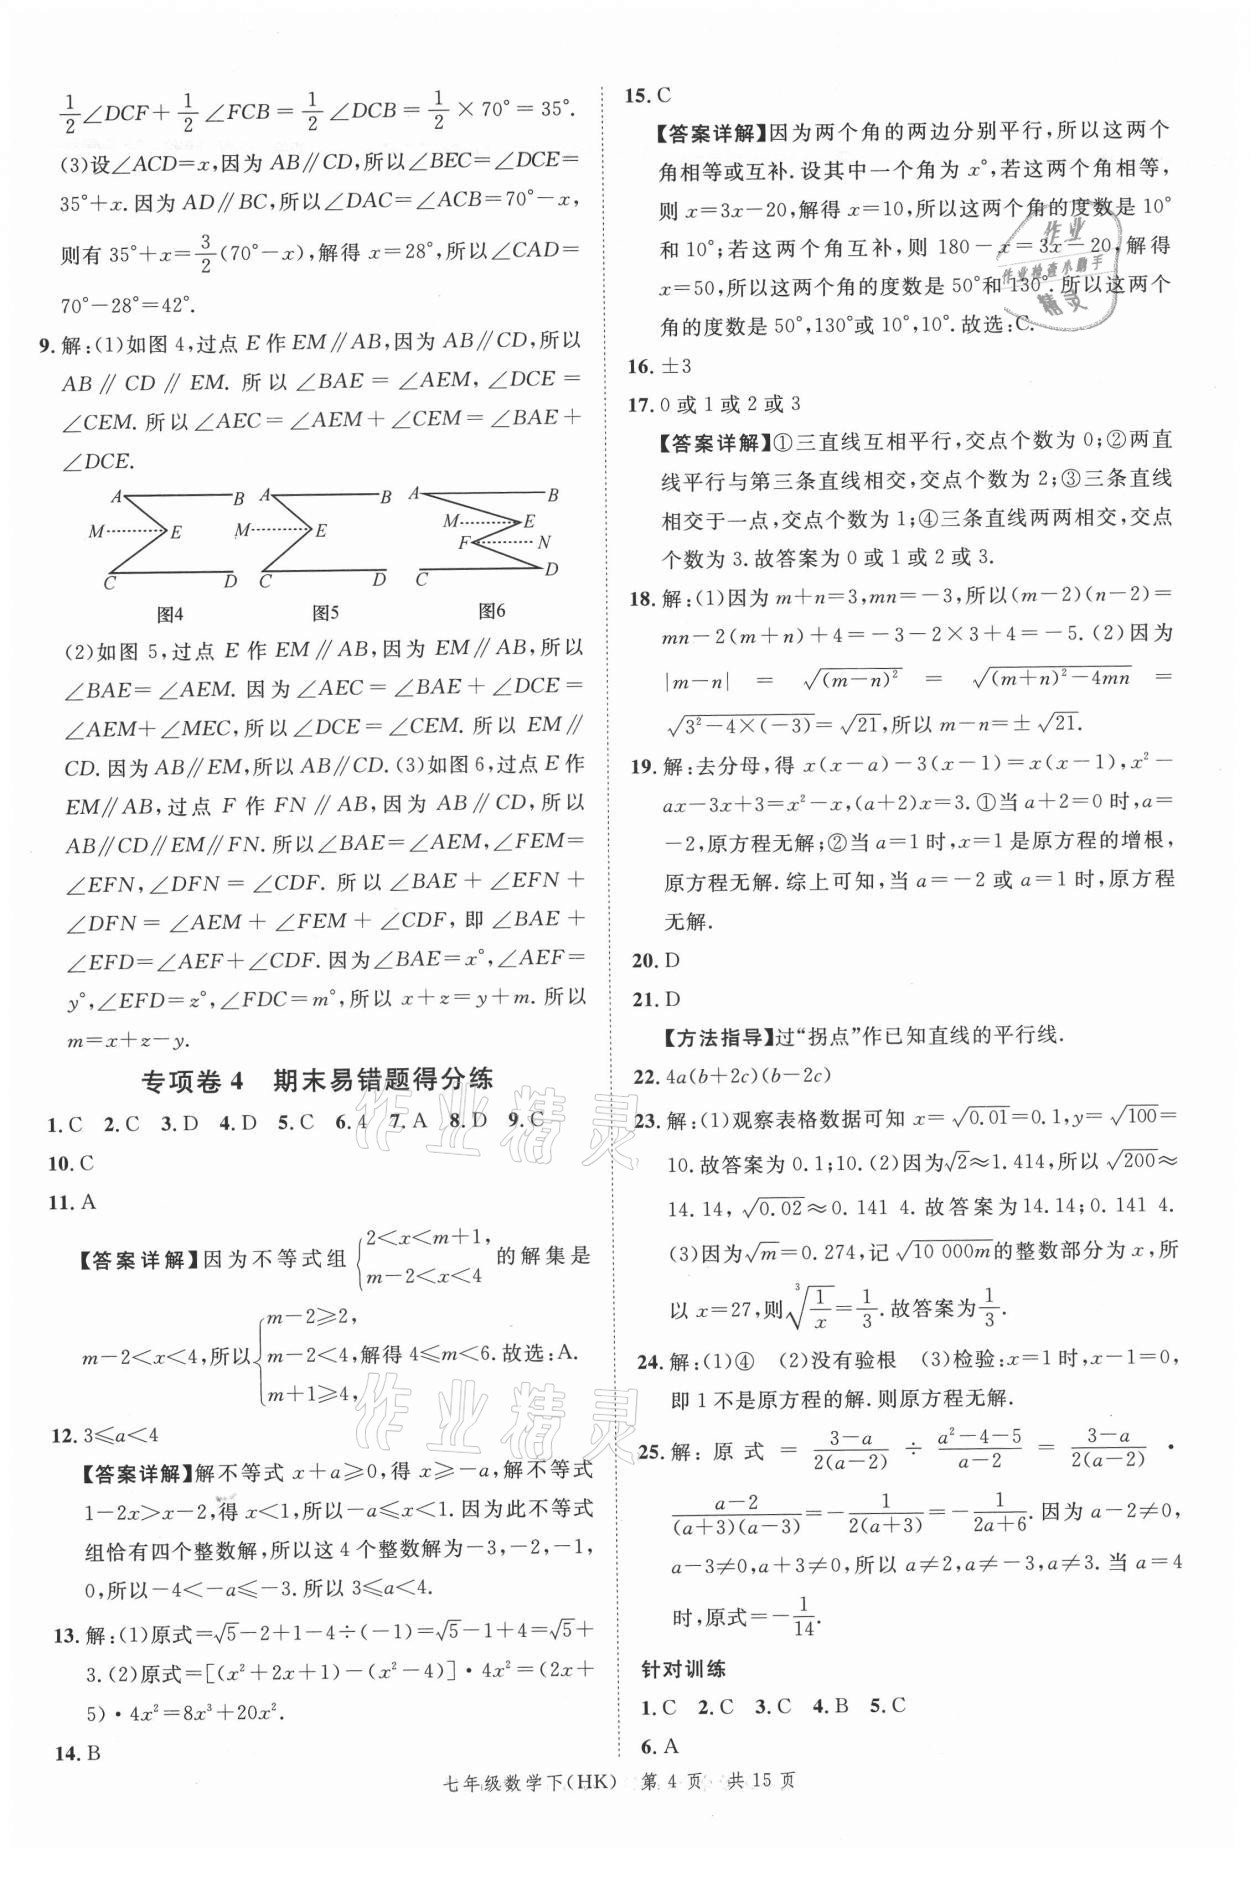 1/2∠DCF+1/2∠FCB=1/2∠DCB=1/2×70°=35°.
(3)设∠ACD=x,因为AB∥CD,所以∠BEC=∠DCE=
35°+x.因为AD∥BC,所以∠DAC=∠ACB=70°-x,
则有35°+x=3/2(70°-x),解得x=28°,所以∠CAD=
70°-28°=42°.
9.解:(1)如图4,过点E作EM∥AB,因为AB∥CD,所以
AB∥CD∥EM.所以∠BAE=∠AEM,∠DCE=
∠CEM.所以∠AEC=∠AEM+∠CEM=∠BAE+
∠DCE.
A B A B A B
M E M E M E
F N
C D C D C D
图4 图5 图6
(2)如图5,过点E作EM∥AB,因为EM∥AB,所以
∠BAE=∠AEM.因为∠AEC=∠BAE+∠DCE=
∠AEM+∠MEC,所以∠DCE=∠CEM.所以EM∥
CD.因为AB∥EM,所以AB∥CD.(3)如图6,过点E作
EM∥AB,过点F作FN∥AB,因为AB∥CD,所以
AB∥CD∥EM∥FN.所以∠BAE=∠AEM,∠FEM=
∠EFN,∠DFN=∠CDF.所以∠BAE+∠EFN+
∠DFN=∠AEM+∠FEM+∠CDF,即∠BAE+
∠EFD=∠AEF+∠CDF.因为∠BAE=x°,∠AEF=
y°,∠EFD=z°,∠FDC=m°,所以x+z=y+m.所以
m=x+z-y.
专项卷4 期末易错题得分练
1.C 2.C 3.D 4.D 5.C 6.4 7.A 8.D 9.C
10.C
11.A
【答案详解】因为不等式组{2<x<m+1, m-2<x<4 的解集是
m-2<x<4,所以{m-2≥2, m-2<4, m+1≥4, 解得4≤m<6.故选:A.
12.3≤a<4
【答案详解】解不等式x+a≥0,得x≥-a,解不等式
1-2x>x-2,得x<1,所以-a≤x<1.因为此不等式
组恰有四个整数解,所以这4个整数解为-3,-2,-1,
0,所以-4<-a≤-3.所以3≤a<4.
13.解:(1)原式=√5-2+1-4÷(-1)=√5-1+4=√5+
3.(2)原式=[(x²+2x+1)-(x²-4)]·4x²=(2x+
5)·4x²=8x³+20x².
14.B
15.C
【答案详解】因为两个角的两边分别平行,所以这两个
角相等或互补.设其中一个角为x°,若这两个角相等,
则x=3x-20,解得x=10,所以这两个角的度数是10°
和10°;若这两个角互补,则180-x=3x-20,解得
x=50,所以这两个角的度数是50°和130°.所以这两个
角的度数是50°,130°或10°,10°.故选:C.
16.±3
17.0或1或2或3
【答案详解】①三直线互相平行,交点个数为0;②两直
线平行与第三条直线相交,交点个数为2;③三条直线
相交于一点,交点个数为1;④三条直线两两相交,交点
个数为3.故答案为0或1或2或3.
18.解:(1)因为m+n=3,mn=-3,所以(m-2)(n-2)=
mn-2(m+n)+4=-3-2×3+4=-5.(2)因为
|m-n|=√((m-n)²)=√((m+n)²-4mn)=
√(3²-4×(-3))=√21,所以m-n=±√21.
19.解:去分母,得x(x-a)-3(x-1)=x(x-1),x²-
ax-3x+3=x²-x,(a+2)x=3.①当a+2=0时,a=
-2,原方程无解;②当a=1时,x=1是原方程的增根,
原方程无解.综上可知,当a=-2或a=1时,原方程
无解.
20.D
21.D
【方法指导】过“拐点”作已知直线的平行线.
22.4a(b+2c)(b-2c)
23.解:(1)观察表格数据可知x=√0.01=0.1,y=√100=
10.故答案为0.1;10.(2)因为√2≈1.414,所以√200≈
14.14,√0.02≈0.141 4.故答案为14.14;0.141 4.
(3)因为√m=0.274,记√10 000m的整数部分为x,所
以x=27,则³√(1/x)=1/3.故答案为1/3.
24.解:(1)④ (2)没有验根 (3)检验:x=1时,x-1=0,
即1不是原方程的解.则原方程无解.
25.解:原式=(3-a)/(2(a-2))÷(a²-4-5)/(a-2)=(3-a)/(2(a-2))·
(a-2)/((a+3)(a-3))=-1/(2(a+3))=-1/(2a+6).因为a-2≠0,
a-3≠0,a+3≠0,所以a≠2,a≠-3,a≠3.当a=4
时,原式=-1/14.
针对训练
1.C 2.C 3.C 4.B 5.C
6.A
七年级数学下(HK) 第4页 共15页
作业
作业检查小助手
精灵
作业精灵
作业精灵